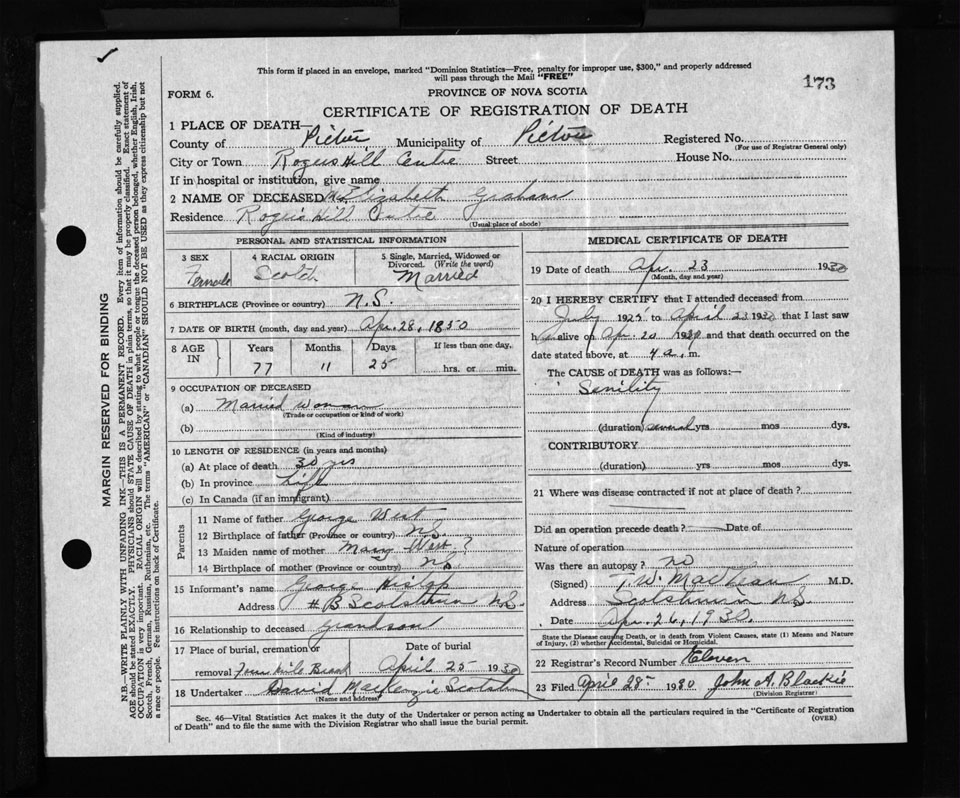 This form if placed in an envelope, marked "Dominion Statistics—Free, penalty for improper use, $300," and properly addressed
will pass through the Mail "FREE"
173
FORM 6.
PROVINCE OF NOVA SCOTIA
CERTIFICATE OF REGISTRATION OF DEATH
1 PLACE OF DEATH—
County of Pictou Municipality of Pictou Registered No.
(For use of Registrar General only)
City or Town Rogers Hill Centre Street House No.
If in hospital or institution, give name
2 NAME OF DECEASED Elizabeth Graham
Residence Rogers Hill Centre
(Usual place of abode)
PERSONAL AND STATISTICAL INFORMATION
3 SEX 4 RACIAL ORIGIN 5 Single, Married, Widowed or Divorced. (Write the word)
Female Scotch Married
6 BIRTHPLACE (Province or country) N.S.
7 DATE OF BIRTH (month, day and year) Apr. 28, 1850
8 AGE IN Years Months Days If less than one day,
77 11 25 hrs. or min.
9 OCCUPATION OF DECEASED
(a) Married woman
(Trade or occupation or kind of work)
(b)
(Kind of industry)
10 LENGTH OF RESIDENCE (in years and months)
(a) At place of death 30 yrs
(b) In province Life
(c) In Canada (if an immigrant)
Parents
11 Name of father George West
12 Birthplace of father (Province or country) N.S.
13 Maiden name of mother Mary West ?
14 Birthplace of mother (Province or country) N.S.
15 Informant's name George Hislop
Address # B Scotsburn N.S.
16 Relationship to deceased grandson
17 Place of burial, cremation or Date of burial
removal Four Mile Brook April 25 1930
18 Undertaker David MacKenzie Scotsburn
(Name and address)
MEDICAL CERTIFICATE OF DEATH
19 Date of death Apr. 23 1930
(Month, day and year)
20 I HEREBY CERTIFY that I attended deceased from
July to April 23 1930 that I last saw
h alive on Apr 20 and that death occurred on the
date stated above, at 4 a. m.
The CAUSE of DEATH was as follows:—
Senility
(duration) several yrs mos dys.
CONTRIBUTORY
(duration) yrs mos dys.
21 Where was disease contracted if not at place of death?
Did an operation precede death? Date of
Nature of operation
Was there an autopsy? no
(Signed) M.D.
Address Scotsburn N.S.
Date Apr. 26, 1930.
State the Disease causing Death, or in death from Violent Causes, state (1) Means and Nature
of Injury, (2) whether Accidental, Suicidal or Homicidal.
22 Registrar's Record Number Eleven
23 Filed April 28 1930 John A. Blaikie
(Division Registrar)
Sec. 46—Vital Statistics Act makes it the duty of the Undertaker or person acting as Undertaker to obtain all the particulars required in the "Certificate of Registration
of Death" and to file the same with the Division Registrar who shall issue the burial permit.
(OVER)
MARGIN RESERVED FOR BINDING
N.B.—WRITE PLAINLY WITH UNFADING INK—THIS IS A PERMANENT RECORD. Every item of information should be carefully supplied.
AGE should be stated EXACTLY. PHYSICIANS should STATE CAUSE OF DEATH in plain terms, so that it may be properly classified. Exact statement of
OCCUPATION is very important. RACIAL ORIGIN will be described by stating to what people or tongue the deceased person belonged, whether English, Irish,
Scotch, French, German, Russian, Ruthenian, etc. The terms "AMERICAN" or "CANADIAN" SHOULD NOT BE USED as they express citizenship but not
a race or people. Fee instructions on back of Certificate.